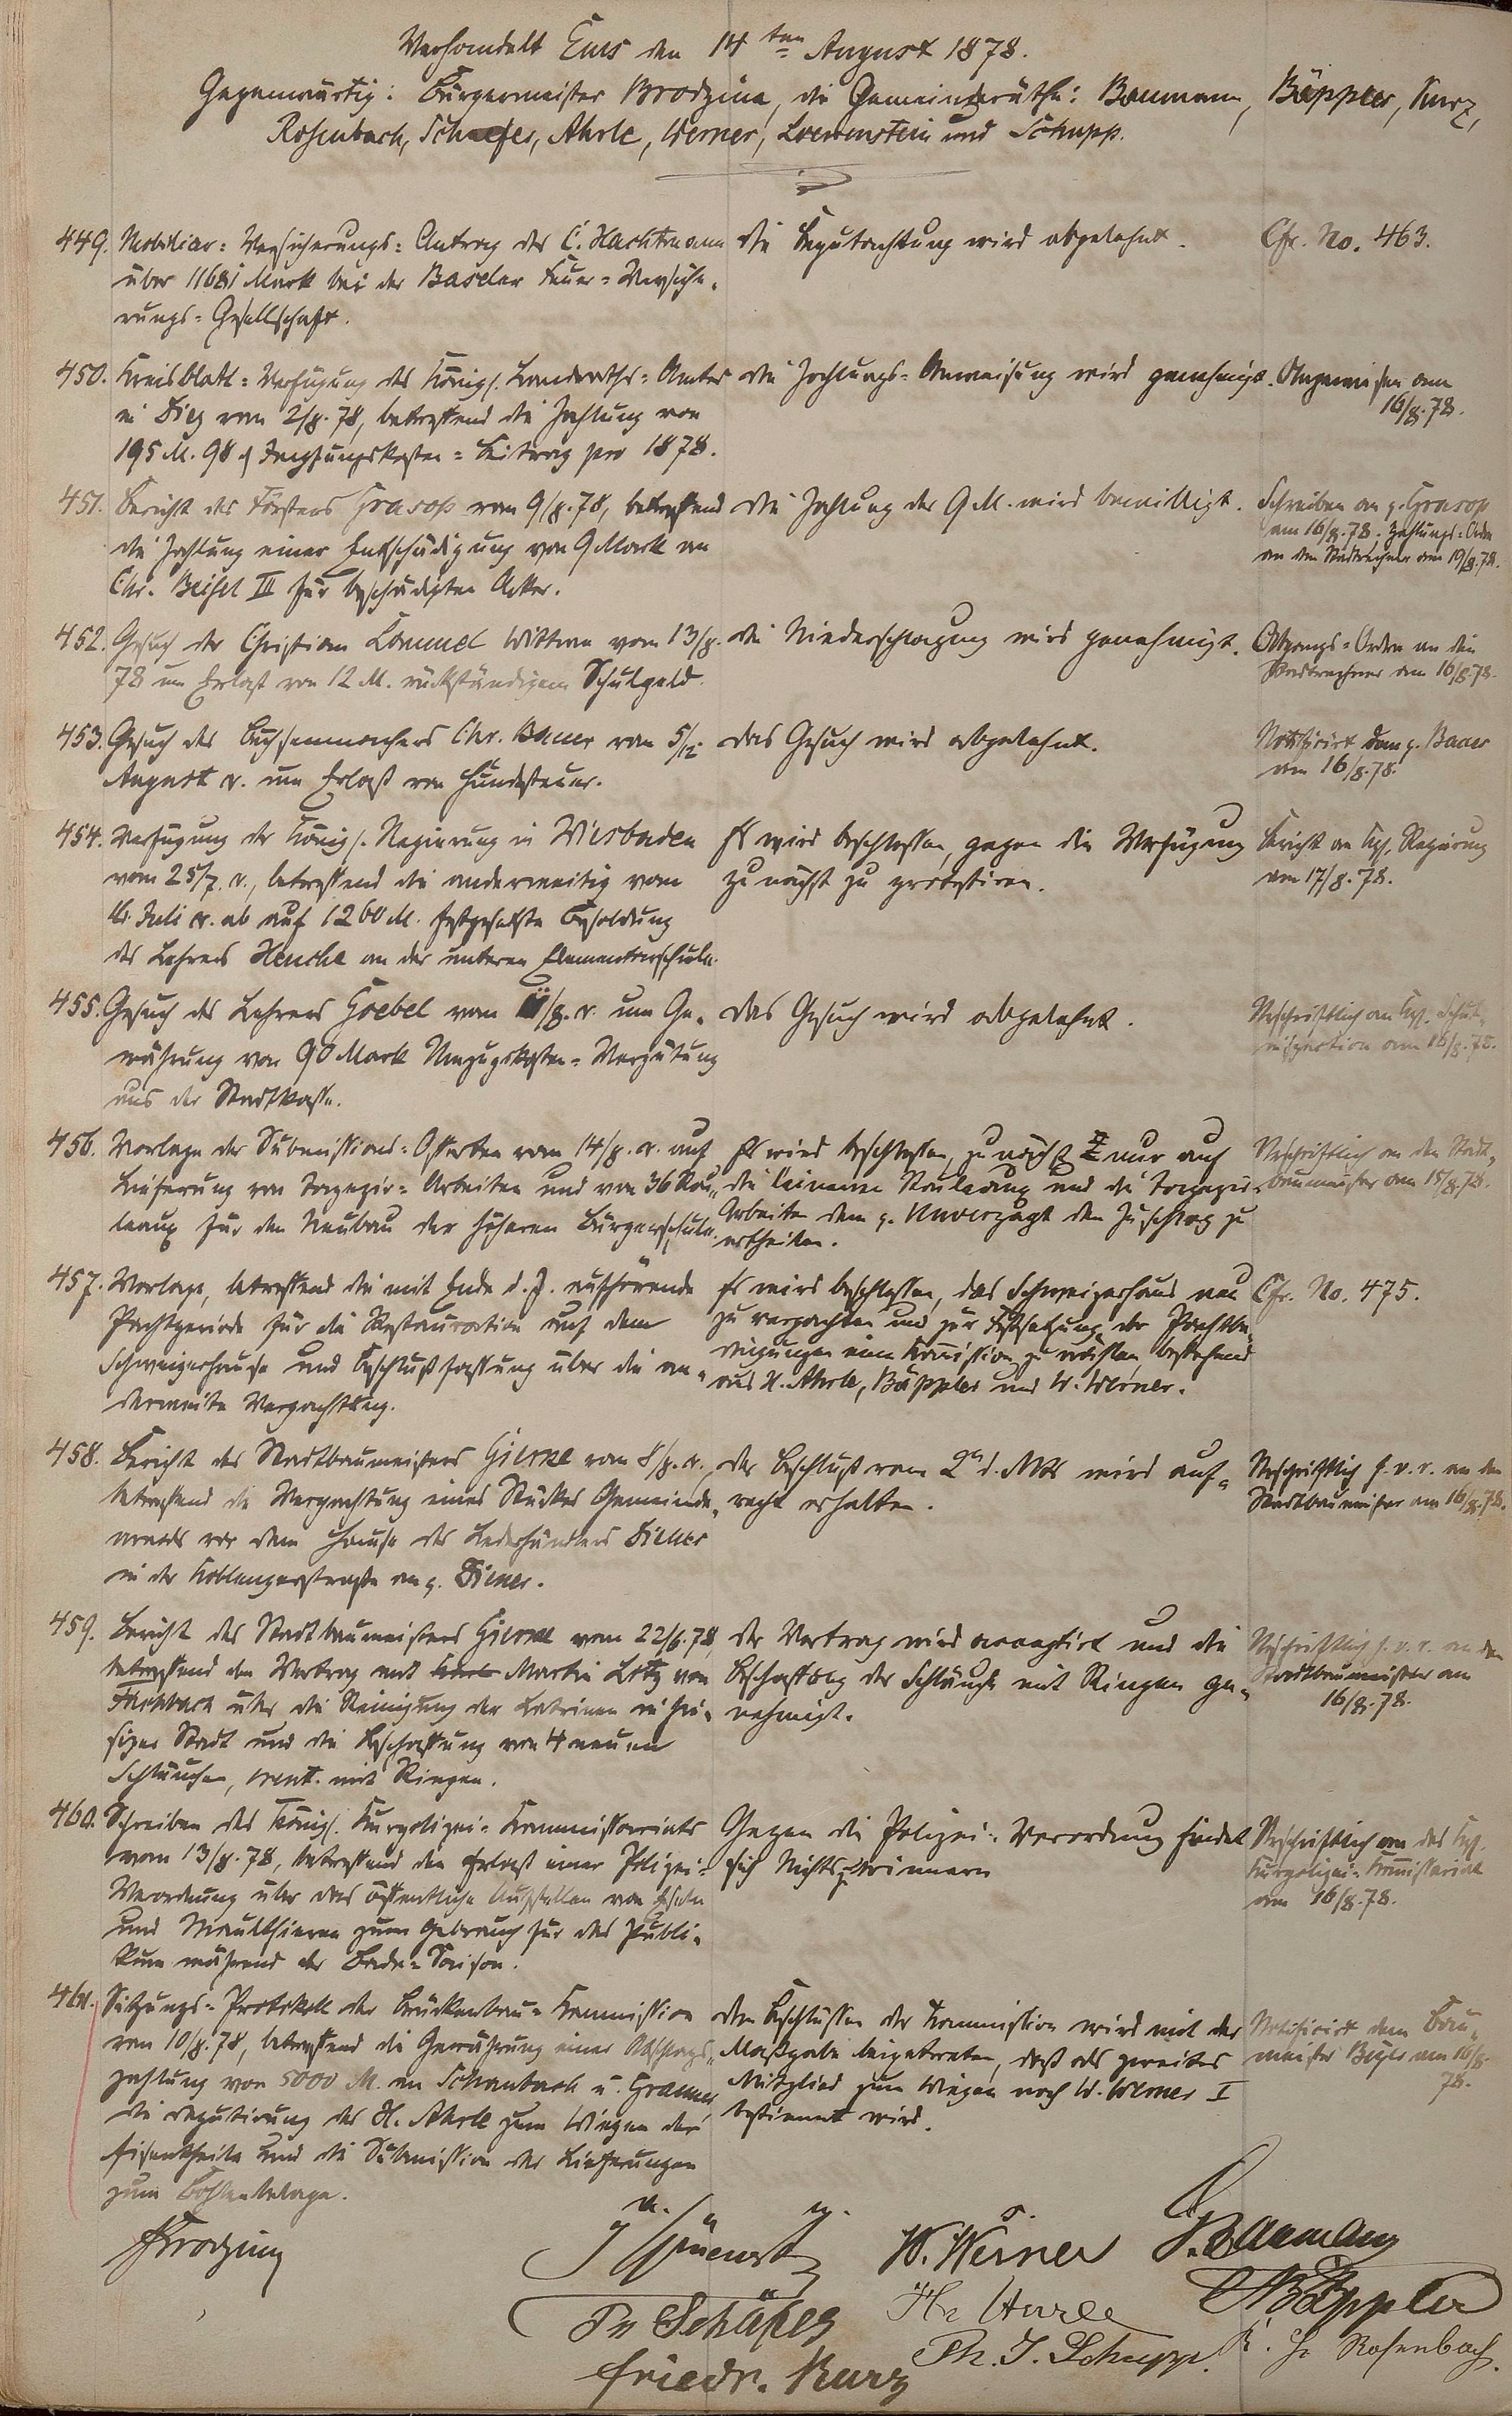 Verhandelt Ems den 14ten August 1878.
Gegenwärtig: Bürgermeister Brodzina, die Gemeinderäthe: Baumann, Bäppler, Kurz,
Rosenbach, Schaefer, Ahrle, Werner, Loewenstein und Schupp.
449. Mobiliar-Versicherungs-Antrag des C. Hachtmann
über 11681 Mark bei der Baseler Feuer-Versiche-
rungs-Gesellschaft.
die Begutachtung wird abgelehnt.
Cfr. No. 463.
450. Kreisblatt-Verfügung des Königl. Landraths-Amtes
in Diez vom 2/8.78, betreffend die Zahlung von
195 M. 98 ₰ Impfungskosten-Beitrag pro 1878.
die Zahlungs-Anweisung wird genehmigt.
Angewiesen am
16/8.78.
451. Bericht des Försters Grasop vom 9/8.78, betreffend
die Zahlung einer Entschädigung von 9 Mark an
Chr. Beisel III für beschädigten Acker.
die Zahlung der 9 M. wird bewilligt.
Schreiben an p. Grasop
am 16/8.78. Zahlungs-Order
an den Stadtrechner am 19/8.78.
452. Gesuch der Christian Lommel Wittwe vom 13/8.
78 um Erlaß von 12 M. rückständigem Schulgeld.
die Niederschlagung wird genehmigt.
Abgangs-Order an den
Stadtrechner am 16/8.78.
453. Gesuch des Büchsenmachers Chr. Bauer vom 5/12
August cr. um Erlaß von Hundesteuer.
das Gesuch wird abgelehnt.
Notifizirt dem p. Bauer
am 16/8.78.
454. Verfügung der Königl. Regierung in Wiesbaden
vom 25/7. cr., betreffend die anderweitig vom
16. Juli cr. ab auf 1260 M. festgesetzte Besoldung
des Lehrers Henche an der unteren Elementarschule.
Es wird beschlossen, gegen die Verfügung
zunächst zu protestiren.
Bericht an Kgl. Regierung
am 17/8.78.
455. Gesuch des Lehrers Goebel vom /8. cr. um Ge-
währung von 90 Mark Umzugskosten-Vergütung
aus der Stadtkasse.
das Gesuch wird abgelehnt.
Urschriftlich an Kgl. Schul-
inspection am 16/8.78.
456. Vorlage der Submissions-Offerten vom 14/8. cr. auf
Lieferung von Tapezir-Arbeiten und von 36 Rou-
leaux für den Neubau der höheren Bürgerschule.
Es wird beschlossen, zunächst nur auf
die leinenen Rouleaux und die Tapezir-
Arbeiten dem p. Unverzagt den Zuschlag zu
ertheilen.
Urschriftlich an den Stadt-
baumeister am 15/8.78.
457. Vorlage, betreffend die mit Ende d. J. aufhörende
Pachtperiode für die Restauration auf dem
Schweizerhause und Beschlußfassung über die an-
derweite Verpachtung.
Es wird beschlossen, das Schweizerhaus neu
zu verpachten und zur Festsetzung der Pachtbe-
dingungen eine Kommission zu wählen, bestehend
aus H. Ahrle, Bäppler und W. Werner.
Cfr. No. 475.
458. Bericht des Stadtbaumeisters Gierse vom 8/8. cr.
betreffend die Verpachtung eines Stückes Gemeinde-
 vor dem Hause des Lederhändlers Diener
in der Koblenzerstraße an p. Diener.
der Beschluß vom 2n d. Mts wird auf-
recht erhalten.
Urschriftlich s. v. r. an den
Stadtbaumeister am 16/8.78.
459. Bericht des Stadtbaumeisters Gierse vom 22/6.78,
betreffend den Vertrag mit Martin Lotz von
Fachbach über die Reinigung der Latrinen in hie-
siger Stadt und die Beschaffung von 4 neuen
Schläuchen, event. mit Ringen.
der Vertrag wird acceptirt und die
Beschaffung der Schläuche mit Ringen ge-
nehmigt.
Urschriftlich s. v. r. an den
Stadtbaumeister am
16/8.78.
460. Schreiben des Königl. Kurpolizei-Kommissariats
vom 13/8.78, betreffend den Erlaß einer Polizei-
Verordnung über das öffentliche Aufstellen von Eseln
und Maulthieren zum Gebrauch für das Publi-
kum während der Bade-Saison.
Gegen die Polizei-Verordnung findet
sich Nichts zu erinnern
Urschriftlich an das Kgl.
Kurpolizei-Kommissariat
am 16/8.78.
461. Sitzungs-Protokoll der Brückenbau-Kommission
vom 10/8.78, betreffend die Gewährung einer Abschlags-
zahlung von 5000 M. an Schaubach u. Graemer,
die Deputirung des H. Ahrle zum Wiegen der
Eisentheile und die Submission der Lieferungen
zum Bohlenbelage.
den Beschlüssen der Kommission wird mit der
Maßgabe beigetreten, daß als zweites
Mitglied zum Wiegen noch W. Werner I
bestimmt wird.
Notificirt dem Bau-
meister am 16/8.
78.
v. g. u.
Brodzina
W. Werner
Baumann
Ph Schäfer
Hr Ahrle
Bäppler
Friedr. Kurz
Ph. J. Schupp.
Rosenbach.